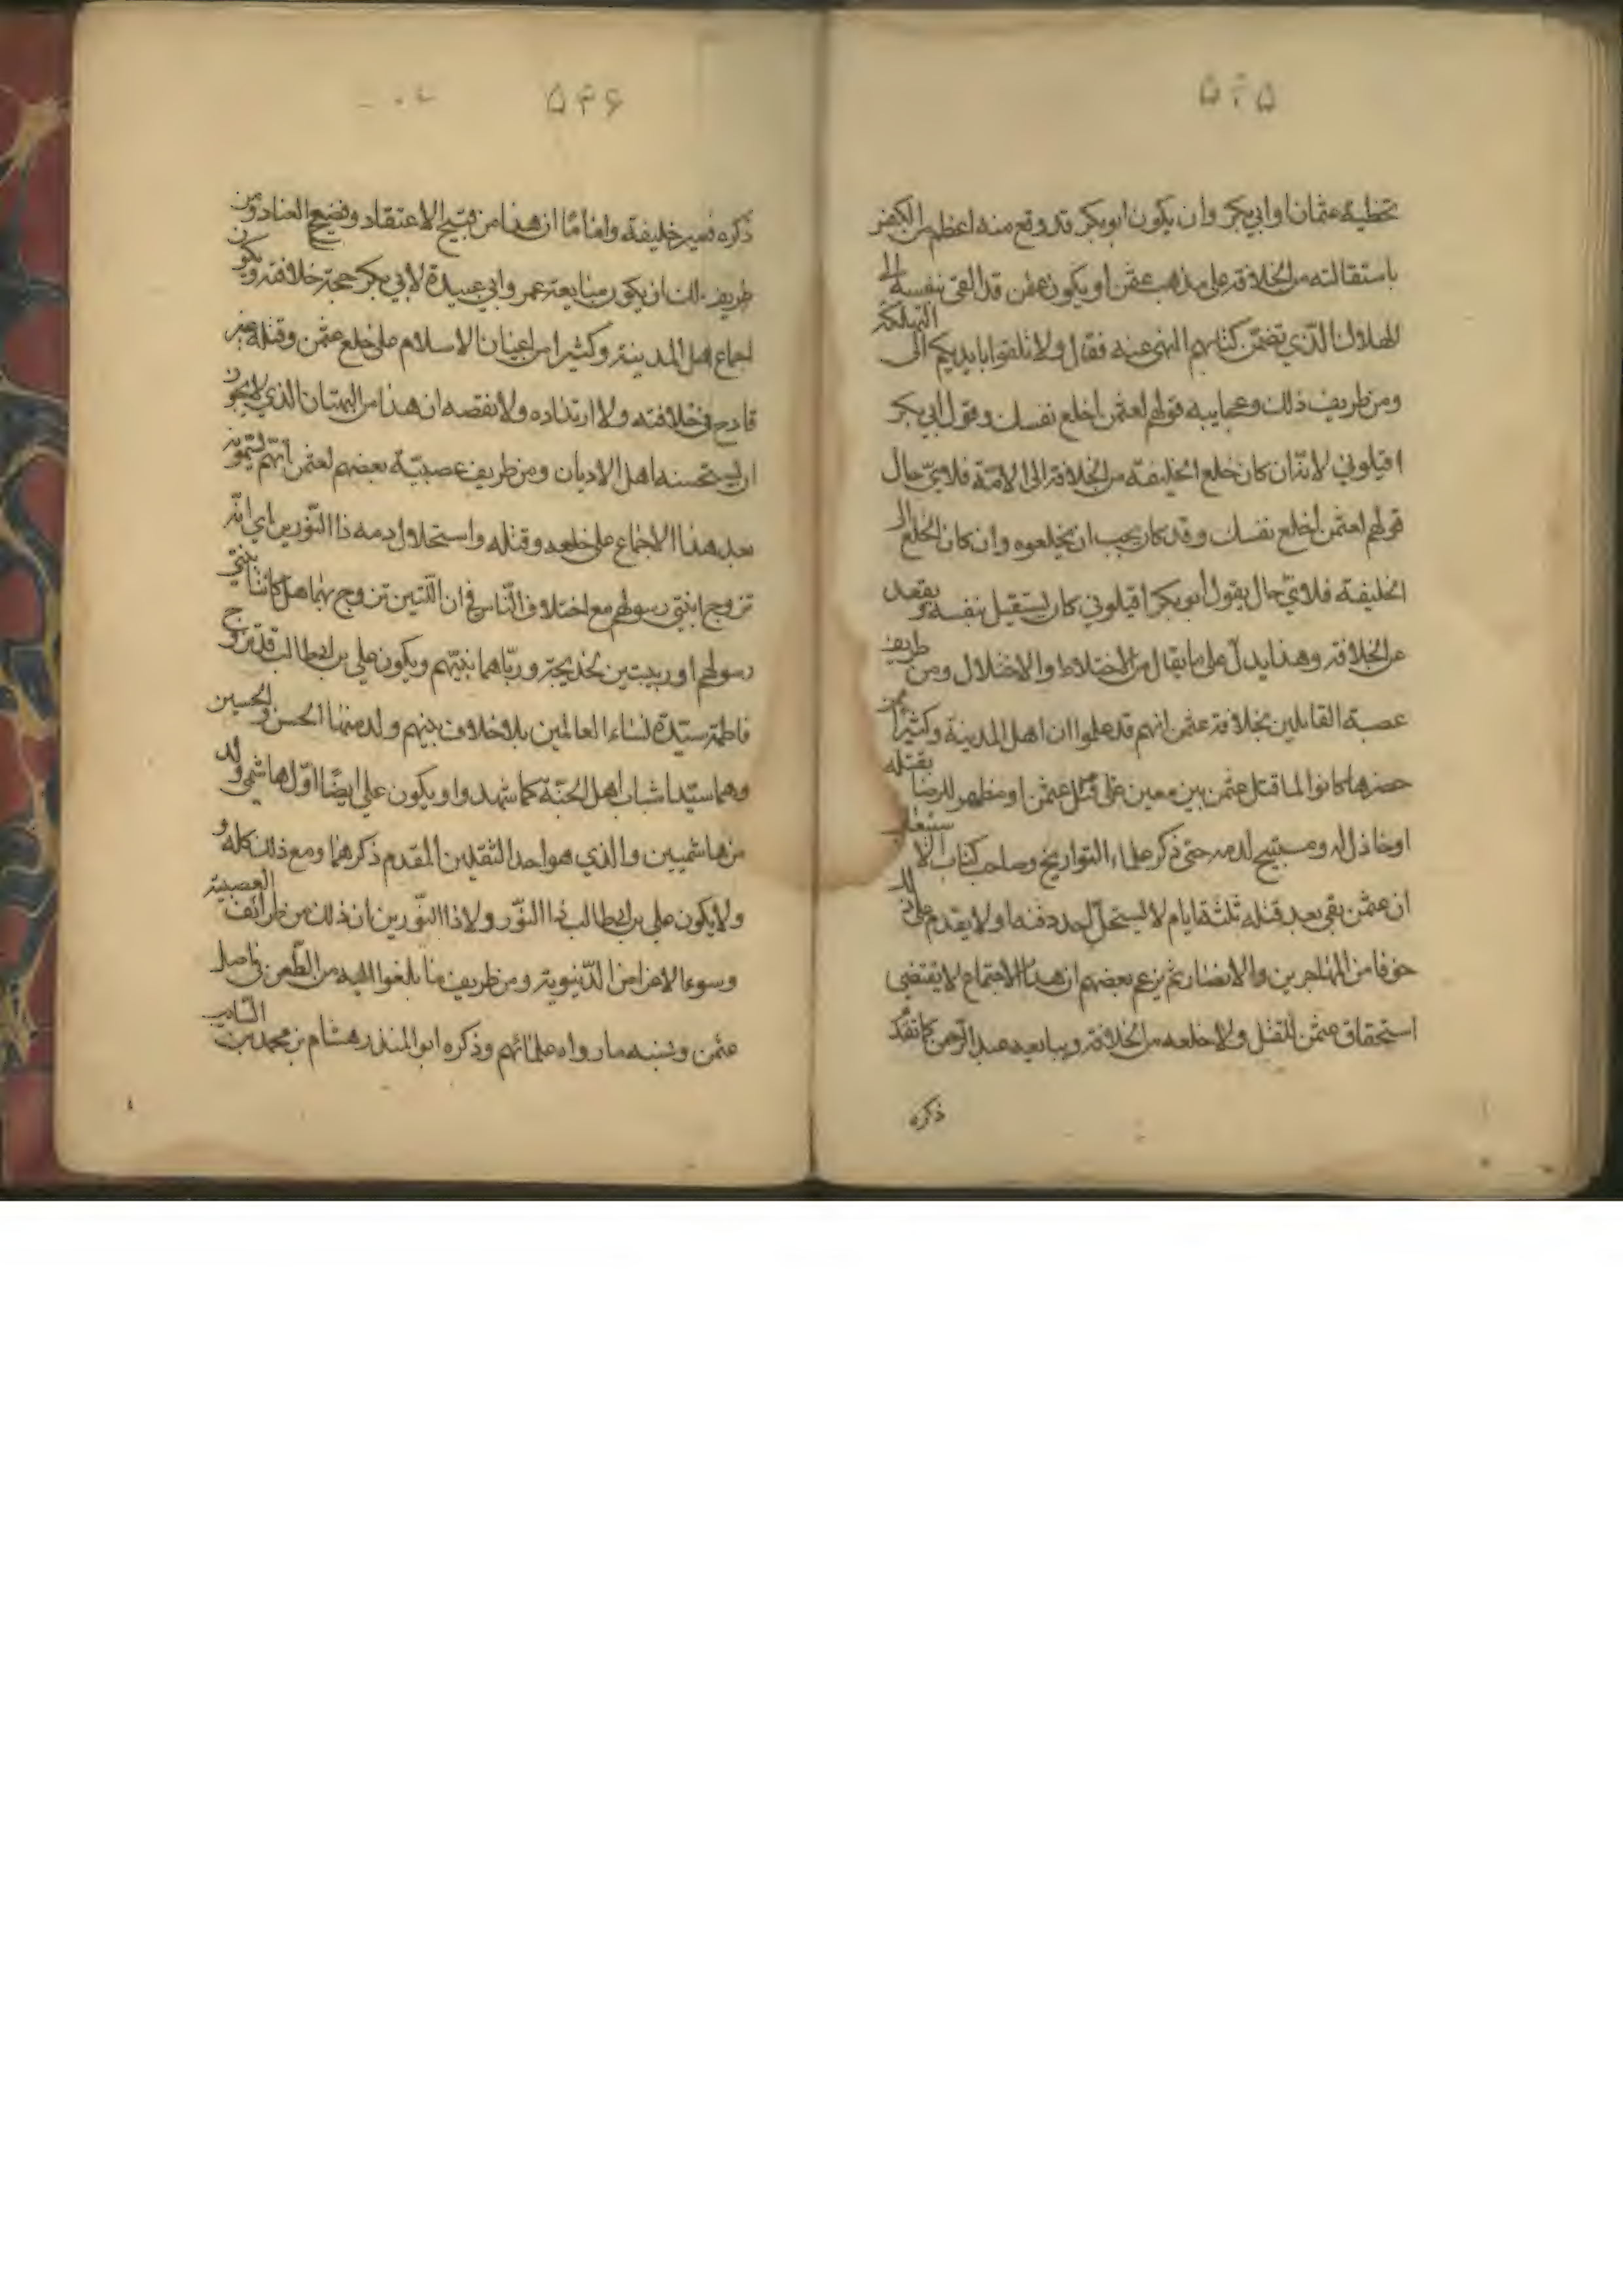 ۵۴۵
تخطية عثمان او ابي بكر وان يكون ابو بكر قد وقع منه اعظم من الكفر
باستقالته من الخلافة على مذهب عثمن او يكون عثمن قد القى نفسه الى
الهلاك الذي تضمن كتابهم النهى عنه فقال ولا تلقوا بايديكم الى التهلكة
ومن طريف ذلك وعجايبه قولهم لعثمن اخلع نفسك وقول ابي بكر
اقيلوني لانه ان كان خلع الخليفة من الخلافة الى الامة فلاي حال
قولهم لعثمن اخلع نفسك وقد كان يجب ان يخلعوه وان كان الخلع الى
الخليفة فلاي حال يقول ابو بكر اقيلوني كان يستقيل بنفسه ويقعد
عن الخلافة وهذا يدل على ما يقال من الاختلاط والاختلال ومن طريف
عصبة القايلين بخلافة عثمن انهم قد علموا ان اهل المدينة وكثيرا ممن
حضرها كانوا لما قتل عثمن بين معين على قتل عثمن او مظهر للرضا بقتله
او خاذل له ومستبيح لدمه حتى ذكر علماء التواريخ وصاحب كتاب الاستيعاب
ان عثمن بقى بعد قتله ثلثة ايام لا يستحل احد دفنه او لا يقدم على ذلك
خوفا من المهاجرين والانصار ثم يزعم بعضهم ان هذا الاجتماع لا يقتضى
استحقاق عثمن للقتل ولا خلعه من الخلافة ويبايعه عبد الرحمن كما تقدم
ذكره
۵۴۶
ذكره فيصير خليفة واماما ان هذا من قبيح الاعتقاد وفضيح العناد ومن
طريف ذلك ان يكون مبايعة عمر وابي عبيدة لابي بكر حجة خلافته ويكون
اجماع اهل المدينة وكثير من اعيان الاسلام على خلع عثمن وقتله غير
قادح في خلافته ولا ارتداده ولا نقصه ان هذا من البهتان الذي لا يجوز
ان يستحسنه اهل الاديان ومن طريف عصبيّة بعضهم لعثمن انهم يسمونه
بعد هذا الاجماع على خلعه وقتله واستحلال دمه ذا النورين اي انه
تزوج ابنتى رسولهم مع اختلاف الناس في ان اللتين تزوج بهما هل كانتا بنتى
رسولهم او ربيبتين لخديجة ورباهما نبيهم ويكون علي بن ابيطالب قد تزوج
فاطمة سيدة نساء العالمين بلا خلاف بينهم ولد منها الحسن والحسين
وهما سيدا شباب اهل الجنة كما شهدوا ويكون علي ايضا اول هاشمي ولد
من هاشميين والذي هو احد الثقلين المقدم ذكرهما ومع ذلك كله و
ولا يكون علي بن ابيطالب ذا النور ولا ذا النورين ان ذلك من طرائف العصبية
وسوء الاغراض الدنيوية ومن طريف ما بلغوا اليه من الطعن في اصل
عثمن ونسبه ما رواه علمائهم وذكره ابو المنذر هشام بن محمد بن السايب